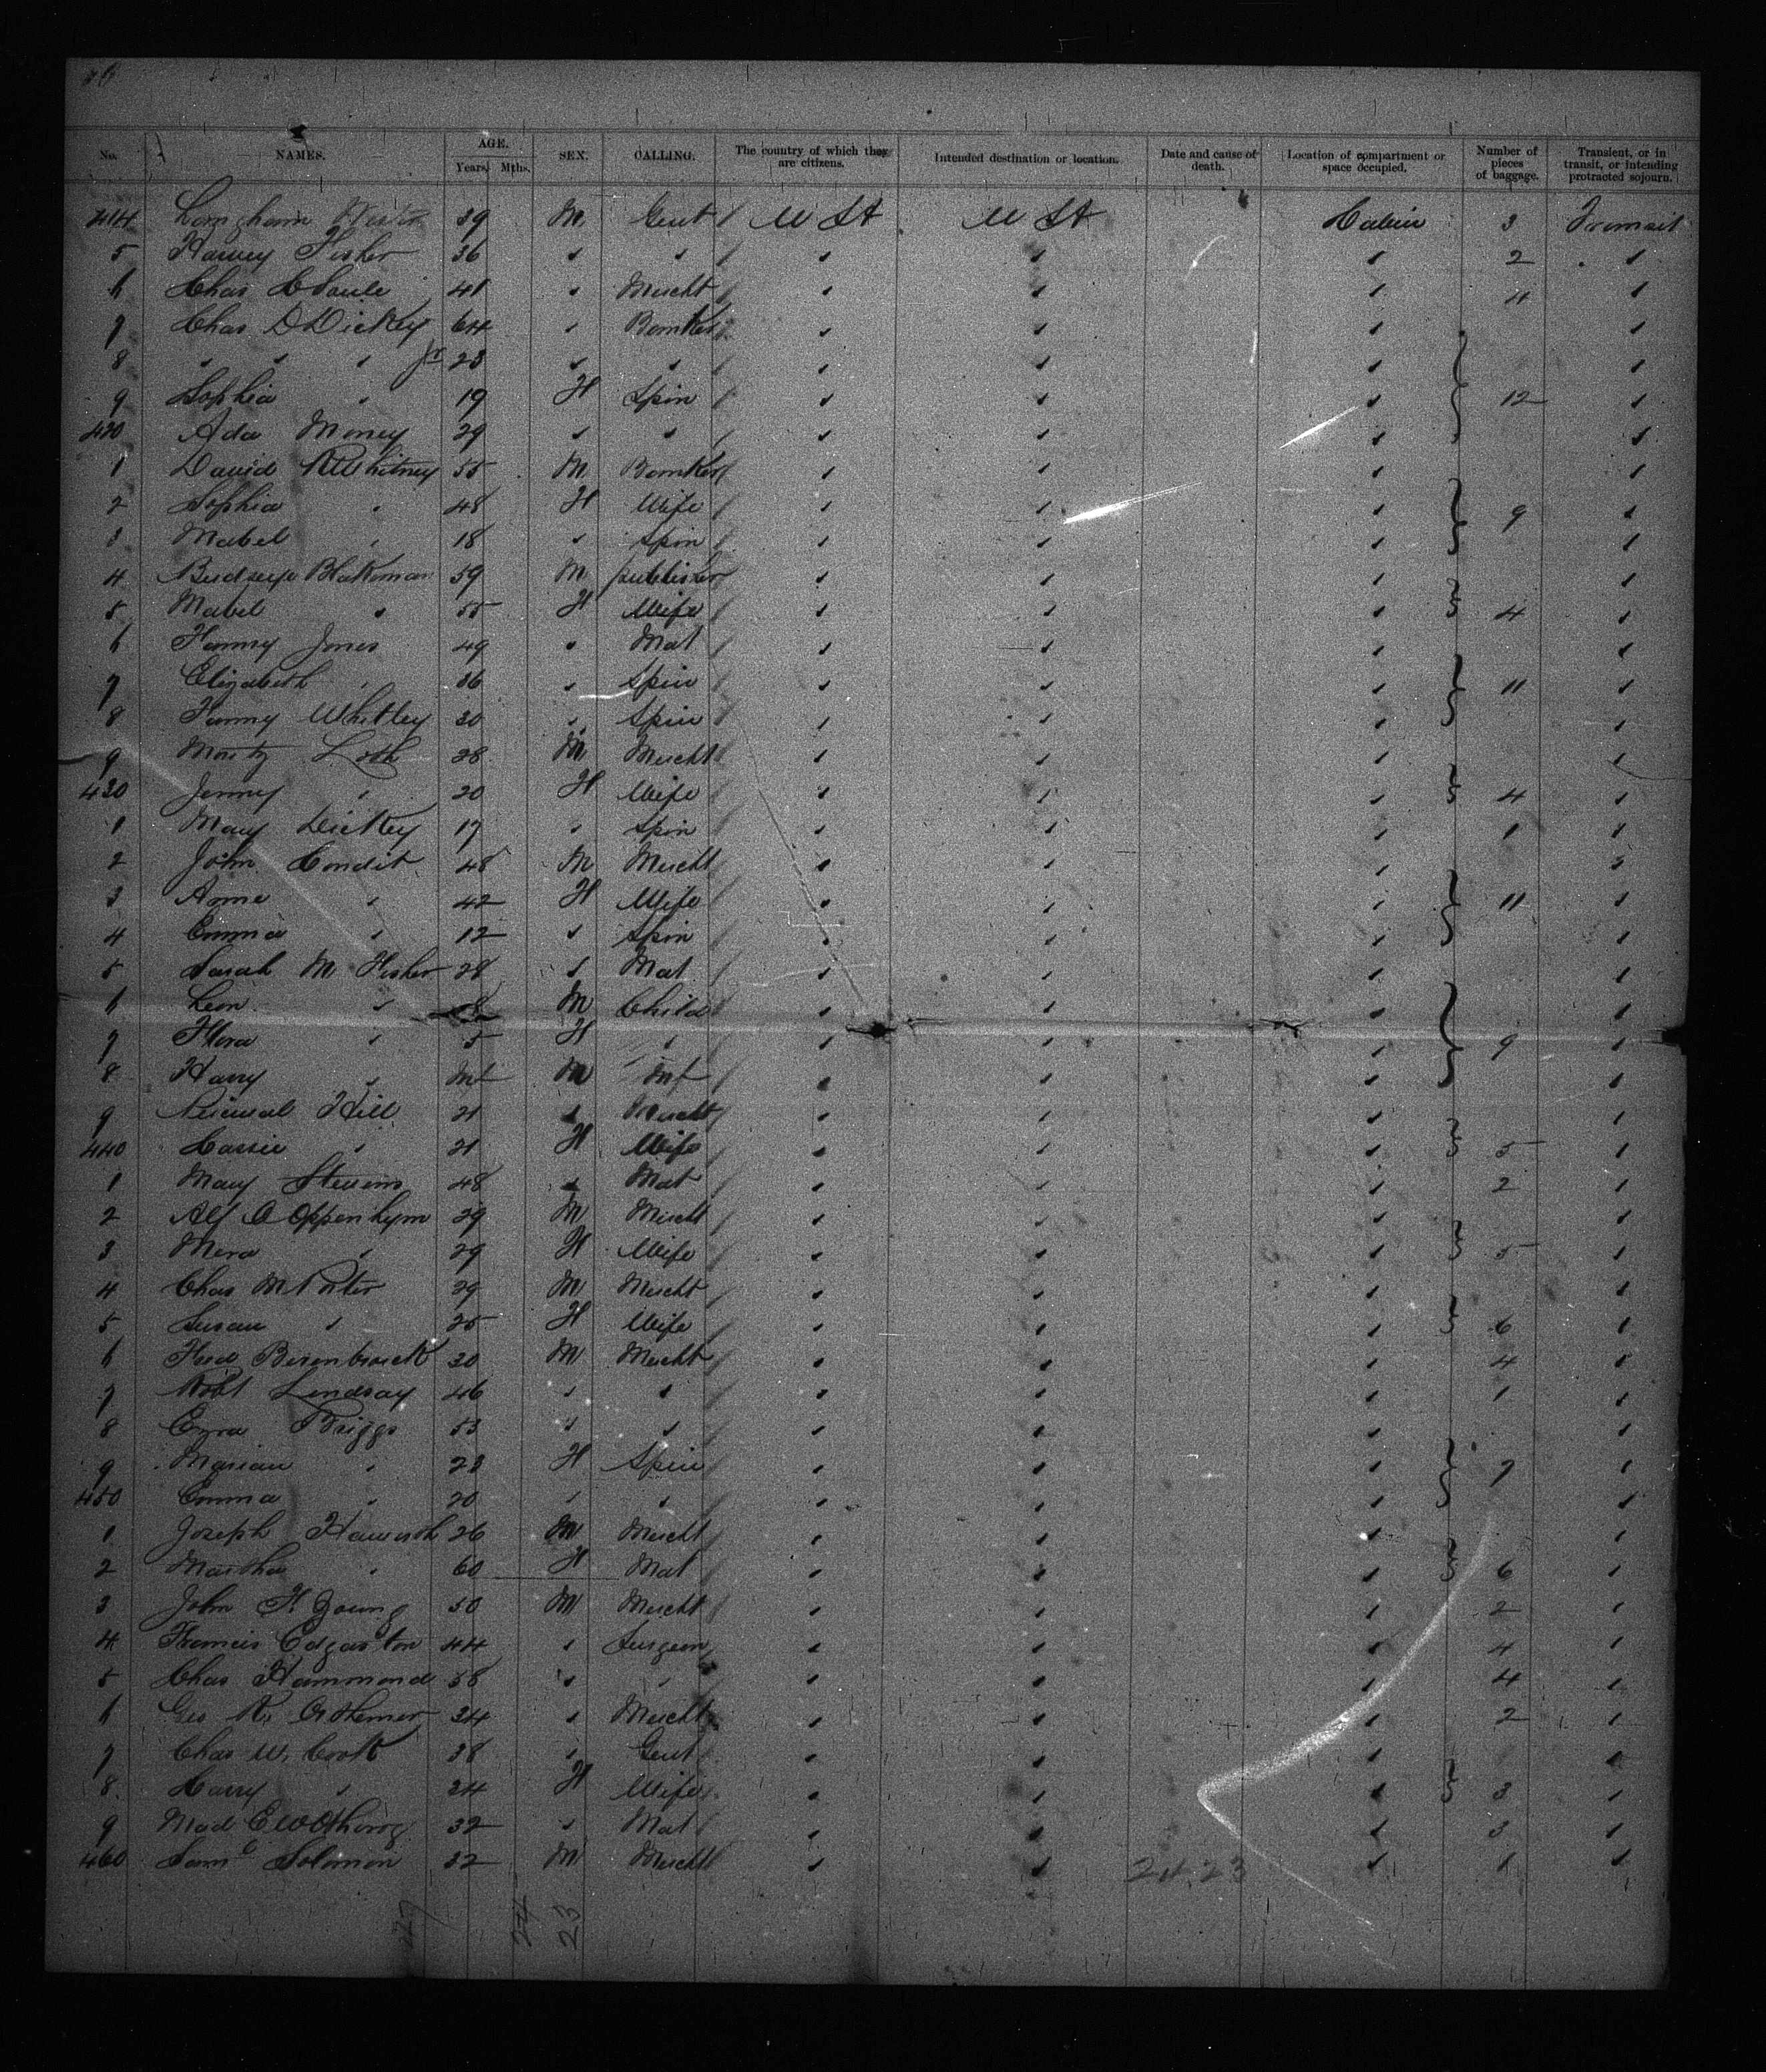 No. NAMES. AGE. Years. Mths. SEX. CALLING. The country of which they are citizens. Intended destination or location. Date and cause of death. Location of compartment or space occupied. Number of pieces of baggage. Transient, or in transit, or intending protracted sojourn.
414 Langham 39 M Gent U St U St Cabin 3 Transit
5 Harvey Fisher 36 " " " " " 2 "
6 Chas C Soule 41 " Mercht " " " 4 "
7 Chas D Dickey 64 " Banker " " " "
8 " " " Jr 23 " " " " " "
9 Sophia " 19 F Spin " " " 12 "
420 Ada Money 29 " " " " " "
1 David Whitney 55 M Banker " " " "
2 Sophia " 48 F Wife " " " 9 "
3 Mabel " 18 " Spin " " " "
4 Birdseye Blakeman 59 M publisher " " " "
5 Mabel " 55 F Wife " " " 4 "
6 Fanny Jones 49 " Mat " " " "
7 Elizabeth " 36 " Spin " " " 11 "
8 Fanny Whitley 30 " Spin " " " "
9 Moritz Loth 28 M Mercht " " " "
430 Jenny " 20 F Wife " " " 4 "
1 Mary Dickey 17 " Spin " " " 1 "
2 John Condit 48 M Mercht " " " "
3 Anne " 42 F Wife " " " 11 "
4 Emma " 12 " Spin " " " "
5 Sarah M Fisher 28 " Mat " " " "
6 Leon " 8 M Child " " " "
7 Flora " 5 F " " " " 9 "
8 Harry " Inf M Inf " " " "
9 Hill 21 " Mercht " " " "
440 Cassie " 21 F Wife " " " 5 "
1 Mary Stevens 48 " Mat " " " 2 "
2 Alf A Oppenhym 29 M Mercht " " " "
3 Mera " 29 F Wife " " " 5 "
4 Chas M Porter 29 M Mercht " " " "
5 Susan " 25 F Wife " " " 6 "
6 Berenbroick 30 M Mercht " " " 4 "
7 Robt Lindsay 46 " " " " " 1 "
8 Ezra Briggs 53 " " " " " "
9 Marian " 23 F Spin " " " 7 "
450 Emma " 20 " " " " " "
1 Joseph Haworth 26 M Mercht " " " "
2 Martha " 60 F Mat " " " 6 "
3 John F. Young 50 M Mercht " " " 2 "
4 Francis Edgarton 44 " Surgeon " " " 4 "
5 Chas Hammond 58 " " " " " 4 "
6 Geo R. 34 " Mercht " " " 2 "
7 Chas W. Cook 38 " Gent " " " "
8 Carry " 34 F Wife " " " 3 "
9 Mad 32 " Mat " " " 3 "
460 Saml Solomon 32 M Mercht " " " 1 "
24 23